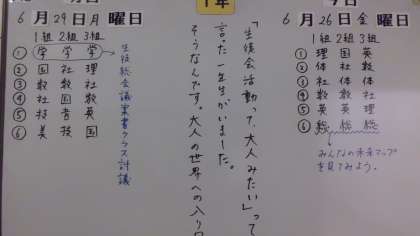 1年
6月29日月曜日
1組 2組 3組
① 学 学 学
② 国 社 理
③ 数 数 社
④ 社 国 数
⑤ 技 音 英
⑥ 美 技 国
生徒総会議案書クラス討議
「生徒会活動って大人みたい」って
言った一年生がいました。
そうなんです。大人の世界への入り口
6月26日金曜日
1組 2組 3組
① 理 国 英
② 体 社 数
③ 社 体 体
④ 数 数 社
⑤ 英 英 理
⑥ 総 総 総
みんなの未来マップ
を見てみよう。